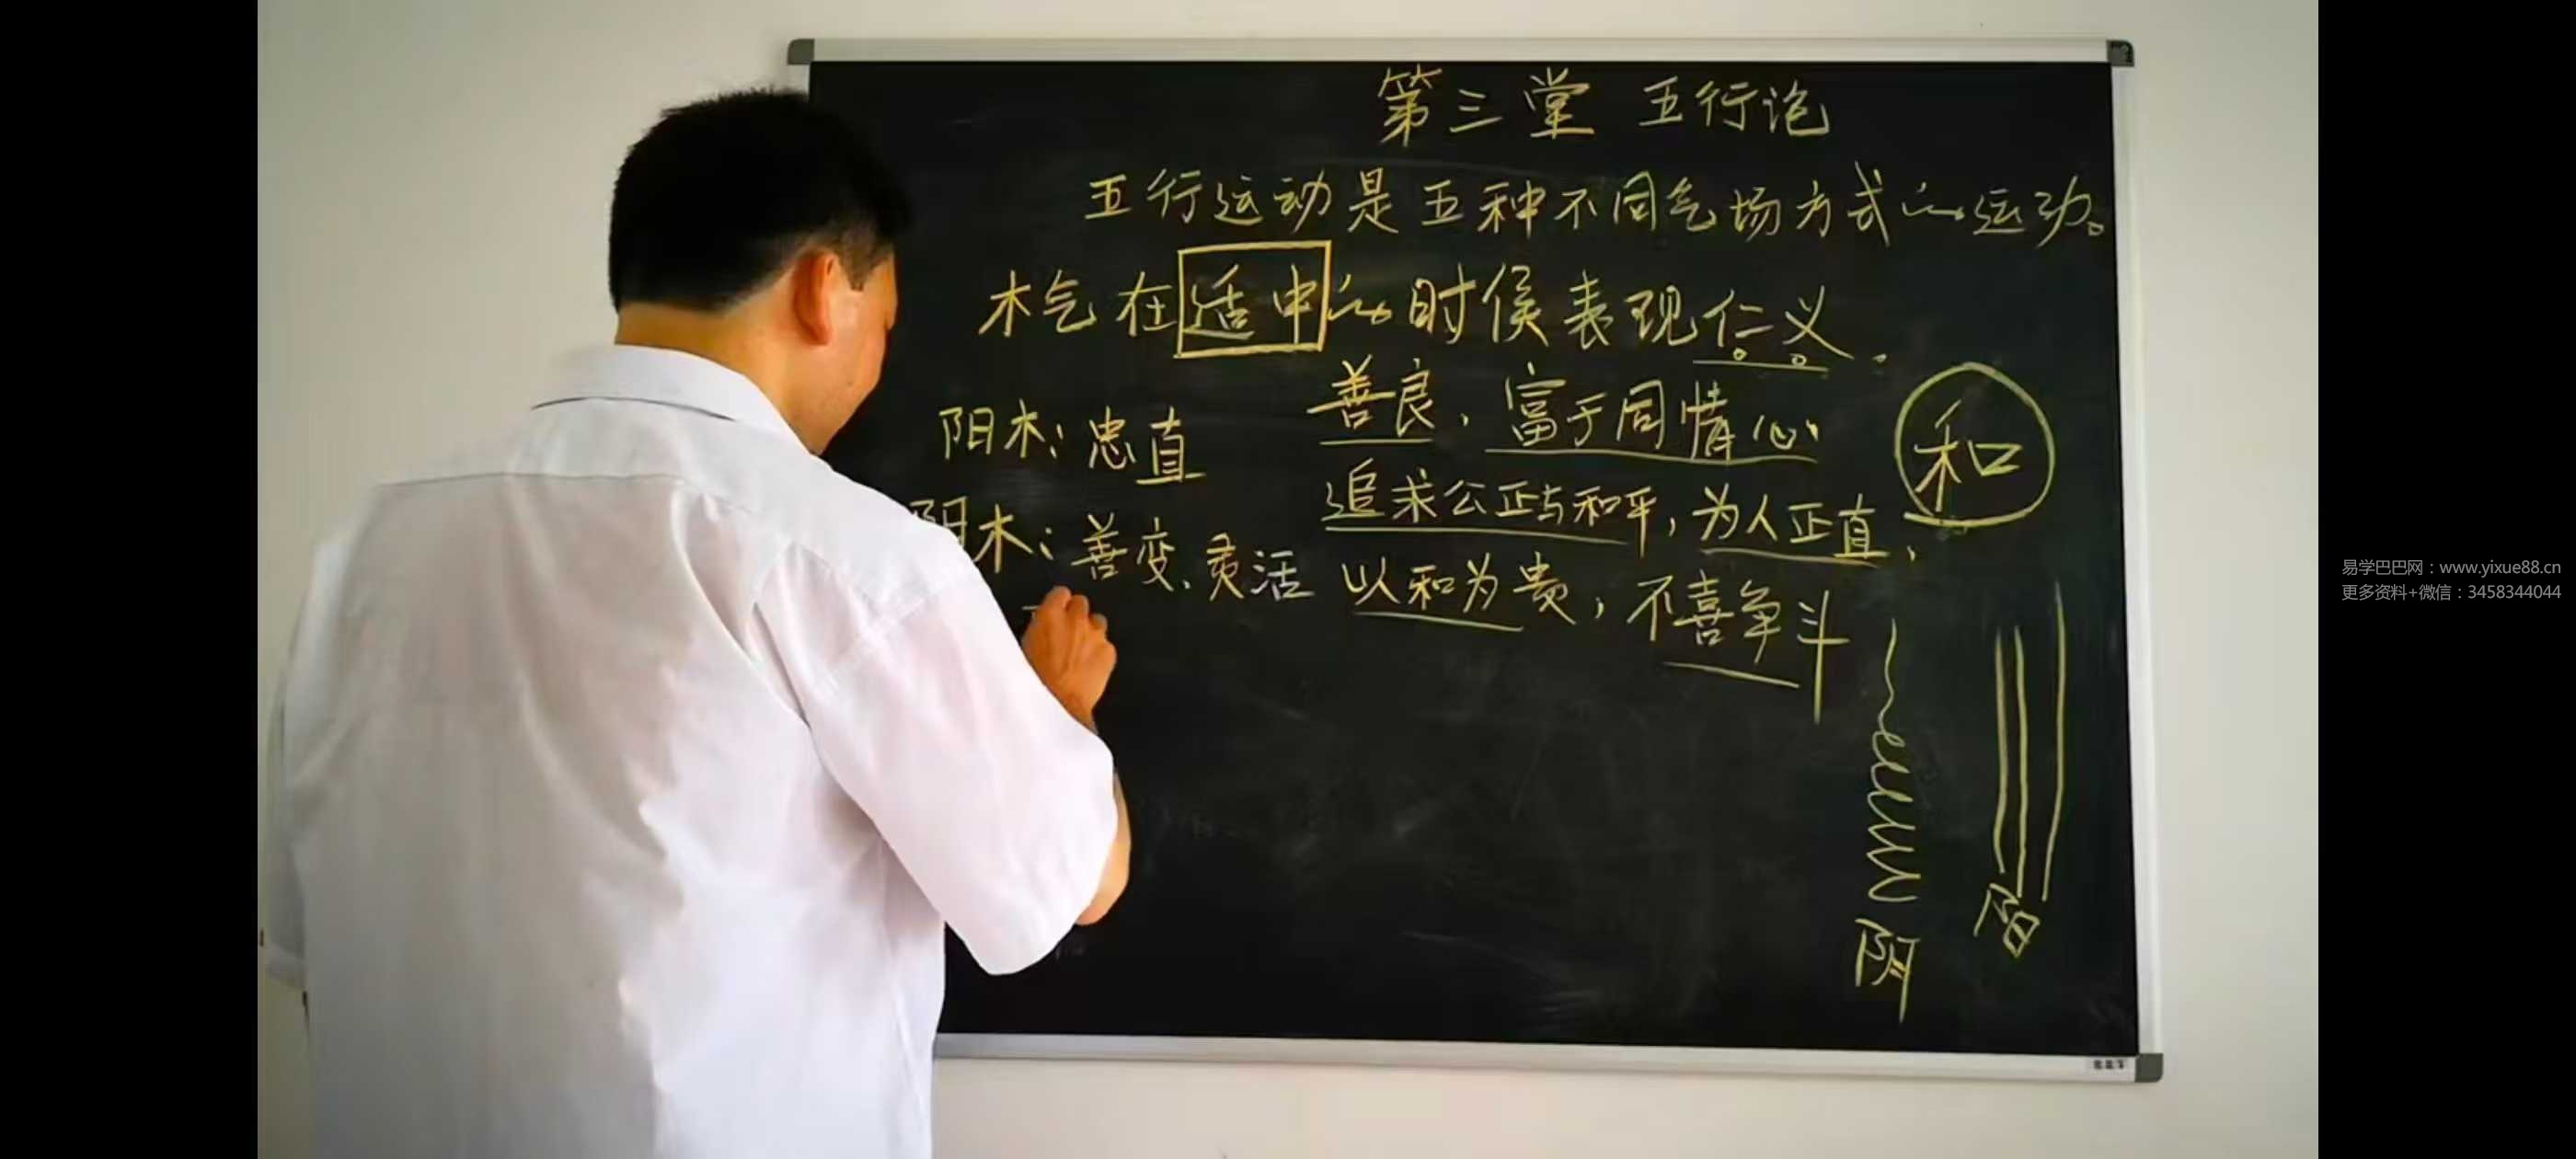 第三堂 五行论
五行运动是五种不同气场方式的运动。
木气在适中的时侯表现仁义.
善良，富于同情心
和
阳木：忠直
追求公正与和平，为人正直，
阴木：善变、灵活
以和为贵，不喜争斗
阴
阳
易学巴巴网：www.yixue88.cn
更多资料+微信：3458344044